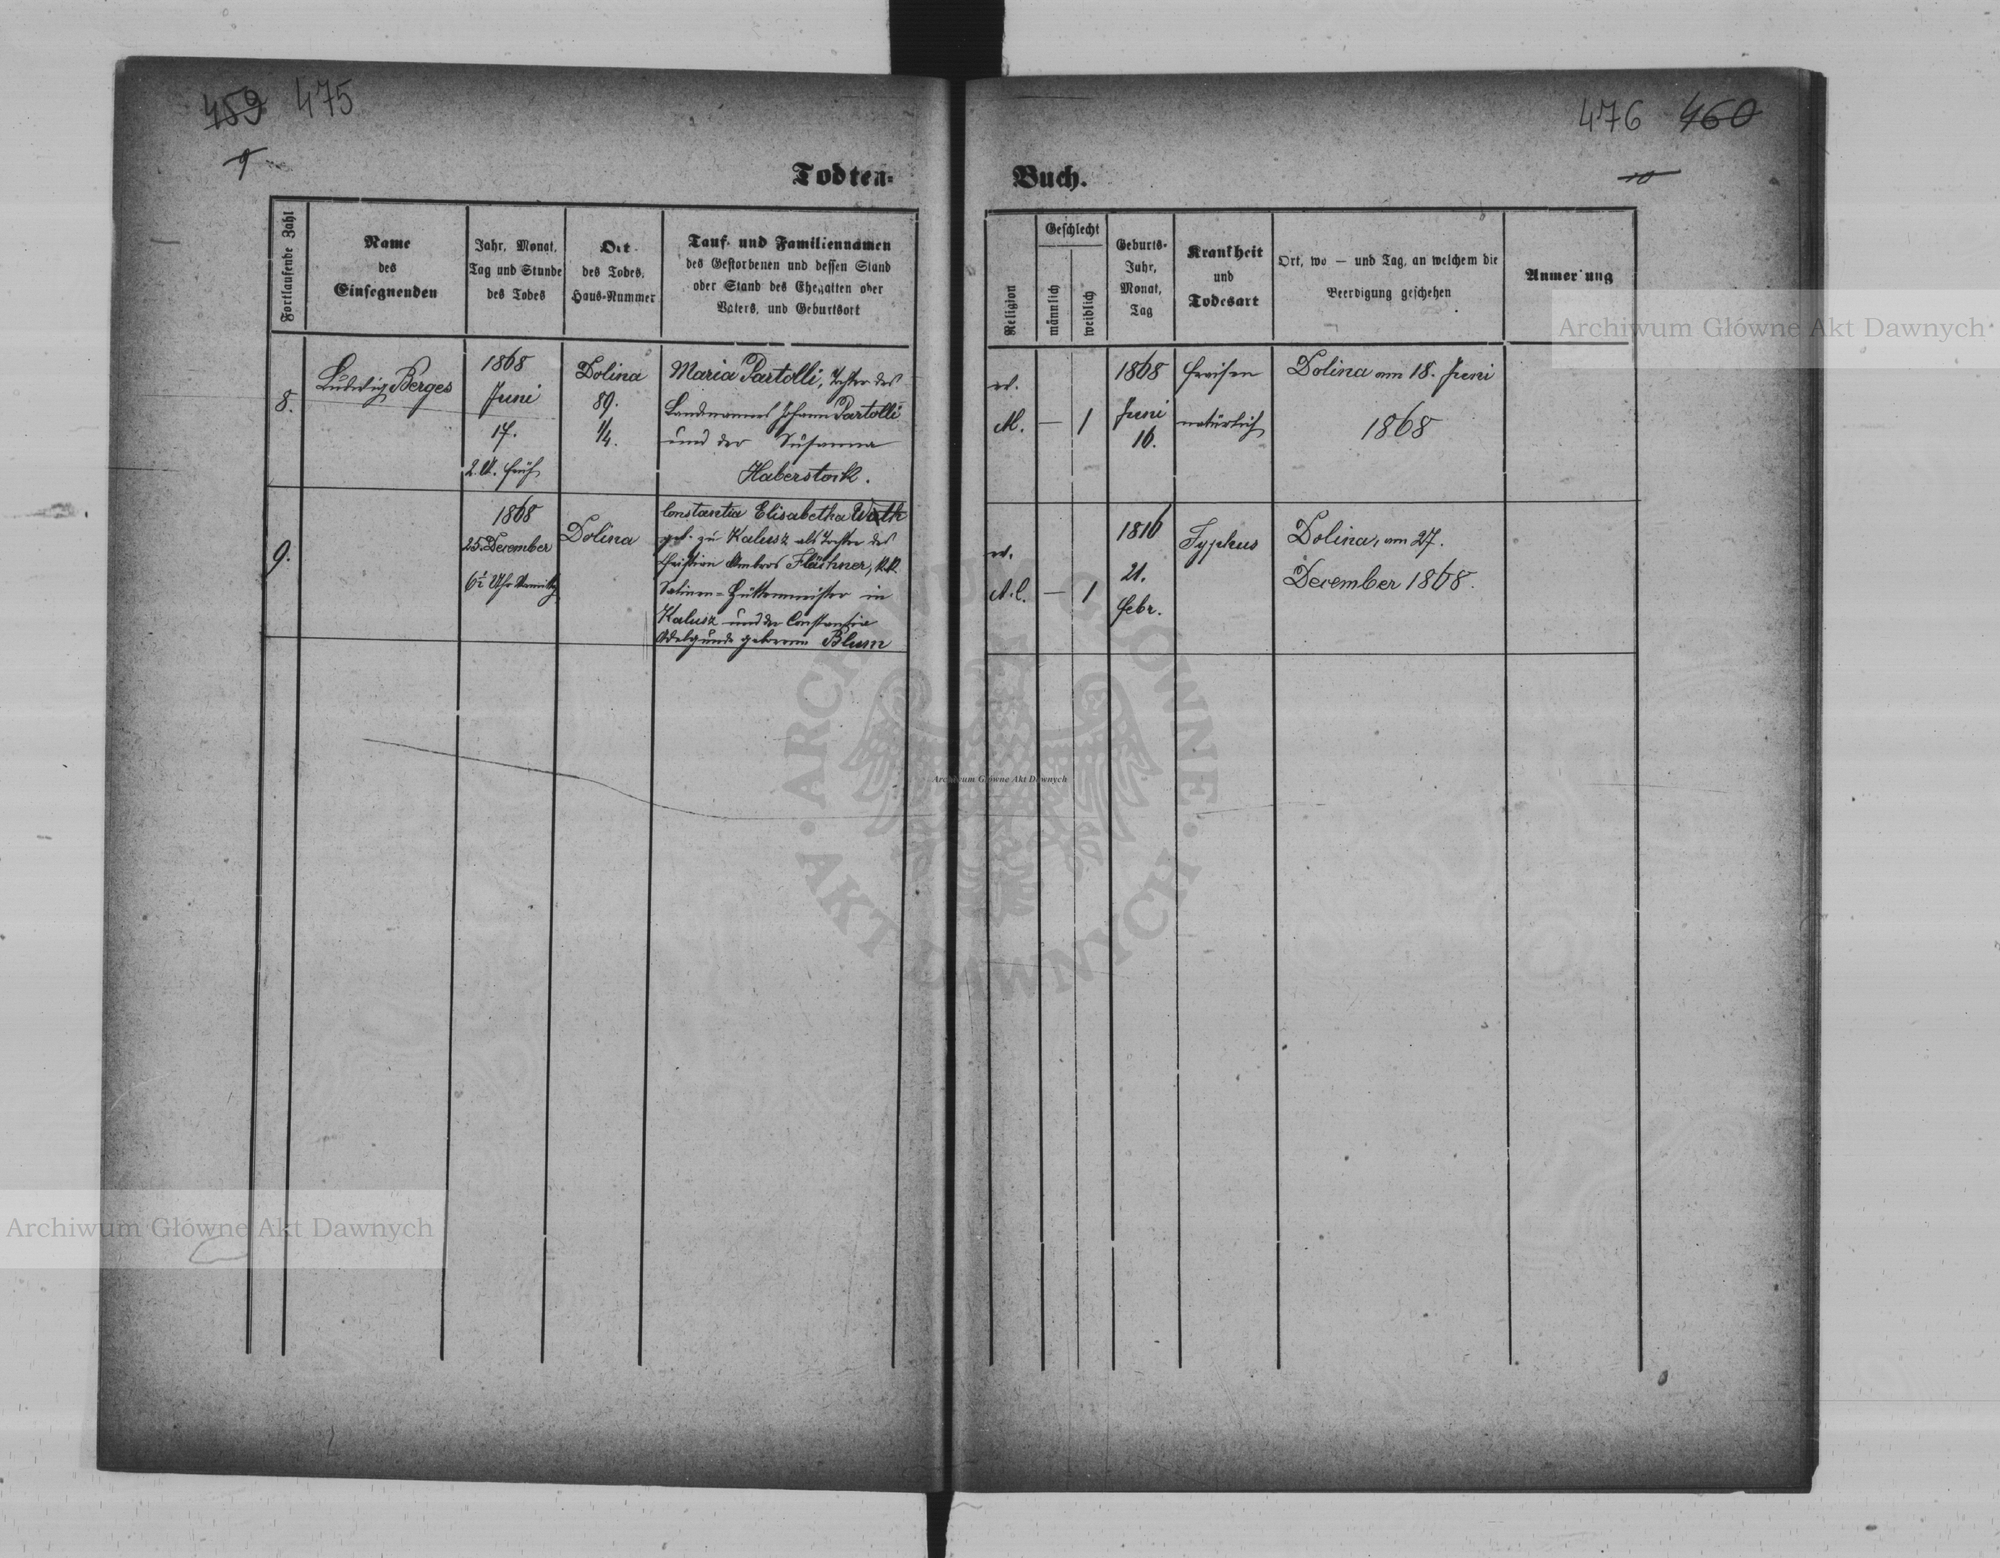 459 475
9
476 460
10
Todten-
Buch.
Fortlaufende Zahl
Name
des
Einsegnenden
Jahr, Monat,
Tag und Stunde
des Todes
Ort
des Todes,
Haus-Nummer
Tauf- und Familiennamen
des Gestorbenen und dessen Stand
oder Stand des Ehegatten oder
Vaters, und Geburtsort
Religion
Geschlecht
männlich
weiblich
Geburts-
Jahr,
Monat,
Tag
Krankheit
und
Todesart
Ort, wo — und Tag, an welchem die
Beerdigung geschehen
Anmerkung
8.
Ludwig Berges
1868
Juni
17.
2. U. früh
Dolina
89.
1/4.
Maria Bartolli, Tochter des
Landmannes Johann Bartolli
und der Susanna
Haberstock.
ev.
—
1
1868
Juni
16.
Fraisen
natürlich
Dolina am 18. Juni
1868
9.
1868
25. December
Uhr
Dolina
Constantia Elisabetha
geb. zu Kalusz als Tochter des
Christian Ambros Fläschner, k.k.
Salinen-Hüttenmeister in
Kalusz und der Constantia
Adelgunde geborene Blum
ev.
A.C.
—
1
1816
21.
Febr.
Typhus
Dolina, am 27.
December 1868.
Archiwum Główne Akt Dawnych
Archiwum Główne Akt Dawnych
Archiwum Główne Akt Dawnych
ARCHIWUM GŁÓWNE · AKT DAWNYCH ·